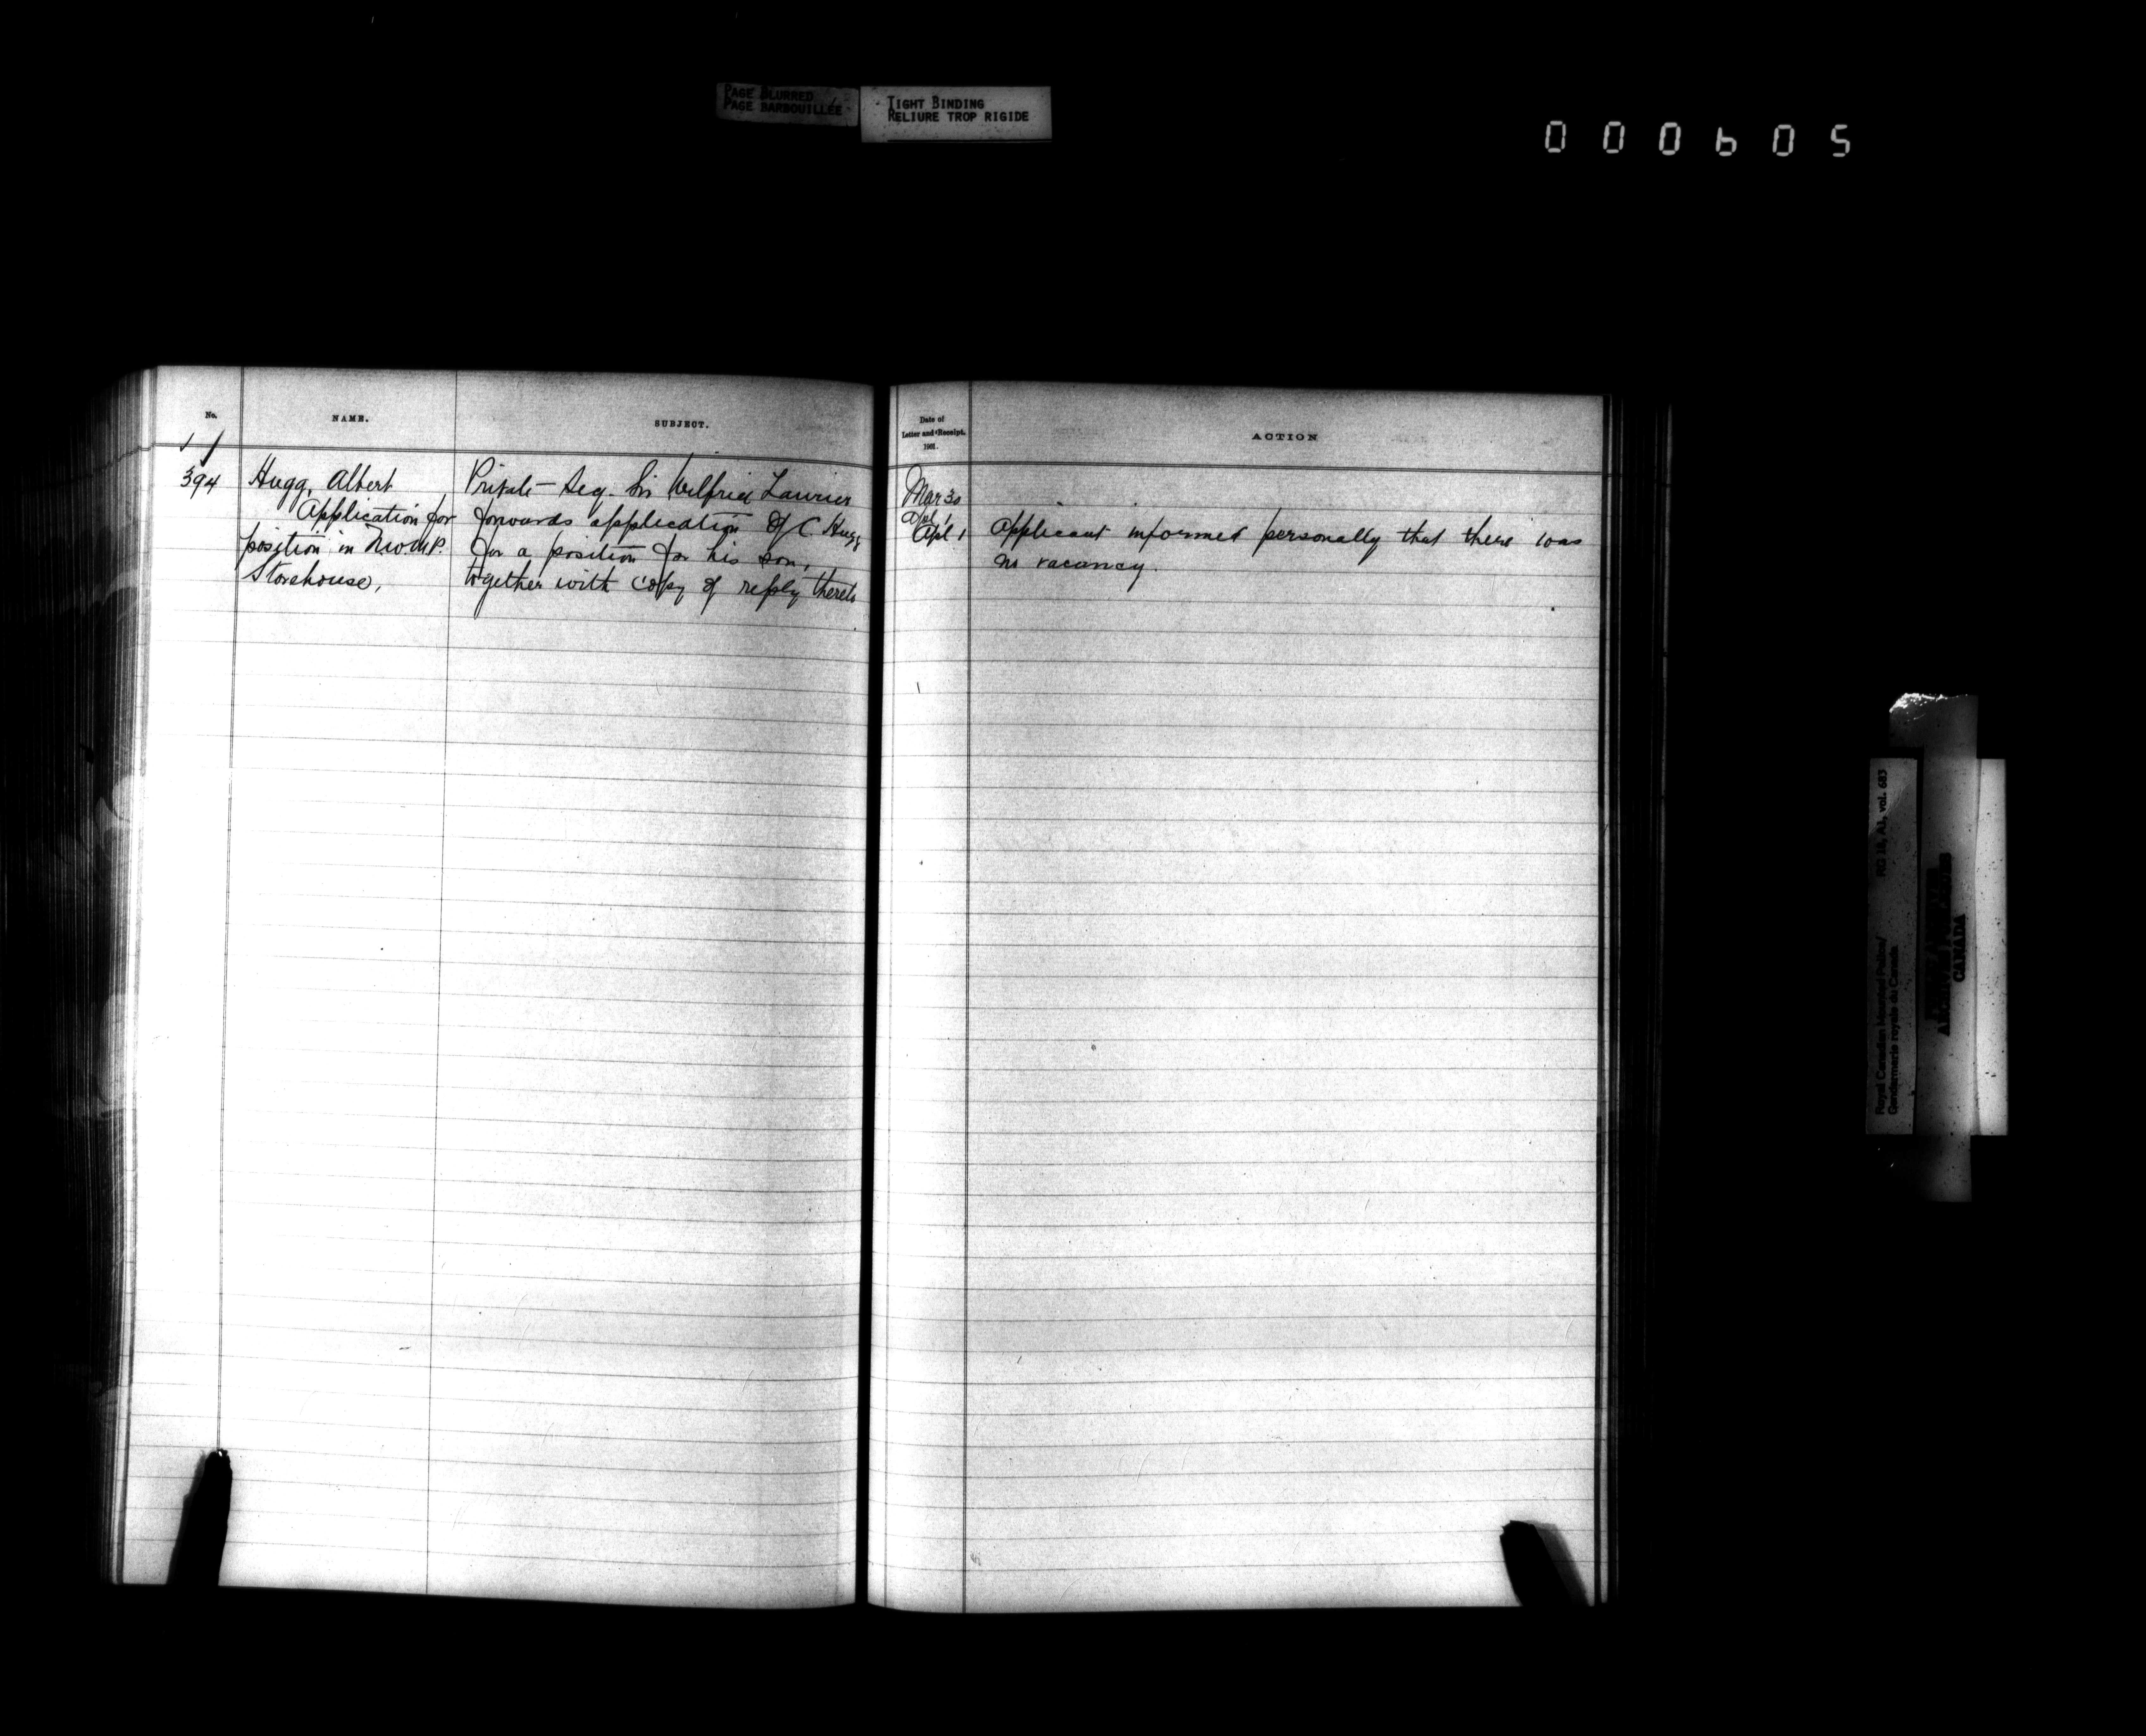 PAGE BLURRED
PAGE BARBOUILLÉE
TIGHT BINDING
RELIURE TROP RIGIDE
000605
No.
NAME.
SUBJECT.
394
Hugg, Albert
Application for
position in N.W.M.P.
Storehouse,
Private Secy. Sir Wilfrid Laurier
forwards application of C. Hugg
for a position for his son,
together with copy of reply thereto
Date of
Letter and Receipt.
1901.
ACTION
Mar 30
Apl 1
Apl 1
Applicant informed personally that there was
no vacancy.
Royal Canadian Mounted Police/
Gendarmerie royale du Canada
RG 18, A1, vol. 683
CANADA